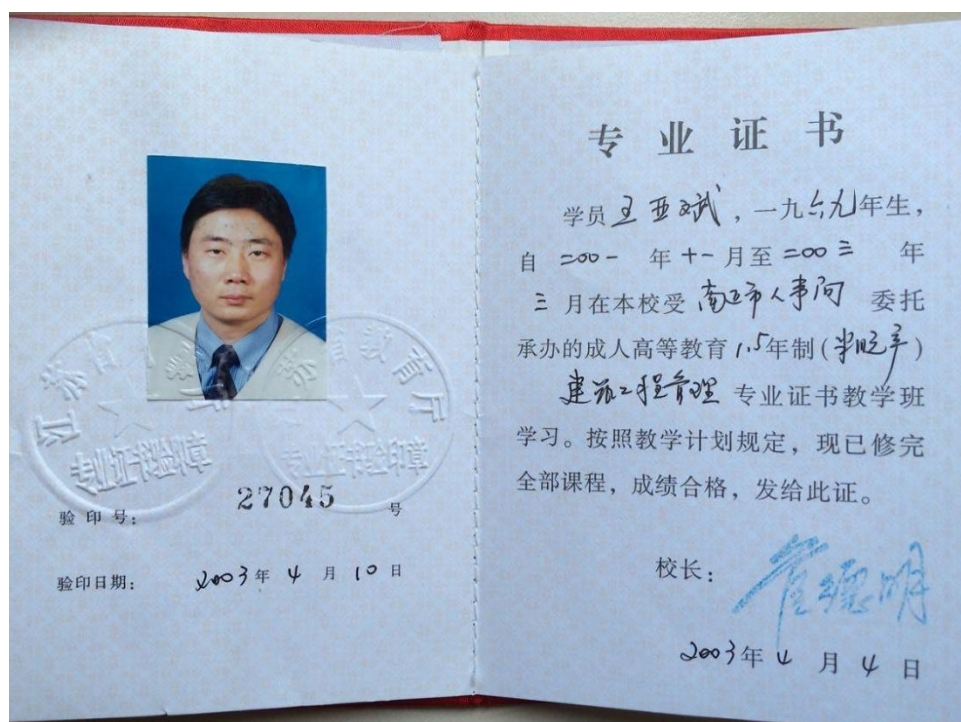 江苏省教育厅
专业证书验印章
验印号： 27045 号
验印日期： 2003年 4 月 10 日
专业证书
学员王亚斌，一九六九年生，
自 二00一 年十一月至二00三 年
三 月在本校受 南通市人事局 委托
承办的成人高等教育1.5年制(半脱产)
建筑工程管理 专业证书教学班
学习。按照教学计划规定，现已修完
全部课程，成绩合格，发给此证。
校长：
2003年 4 月 4 日